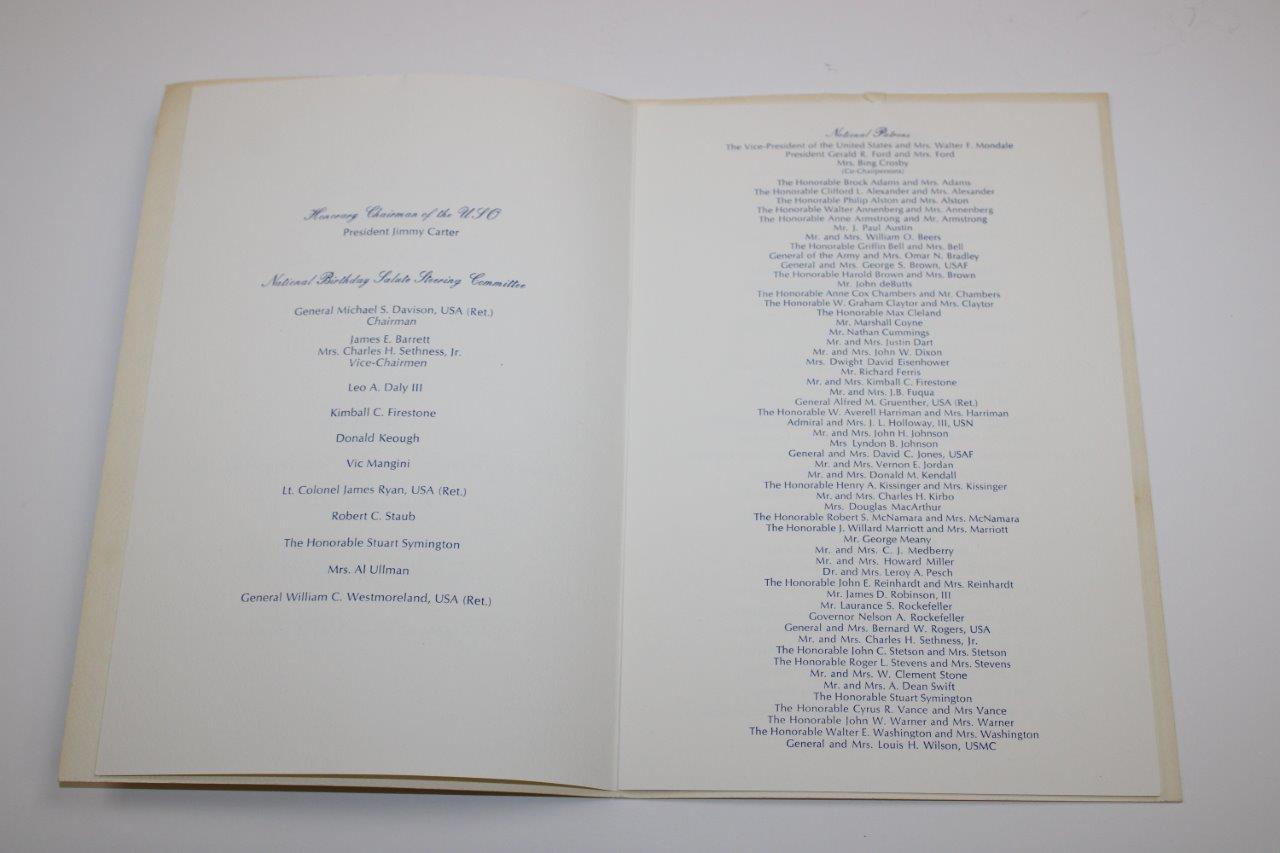 Honorary Chairman of the USO
President Jimmy Carter
National Birthday Salute Steering Committee
General Michael S. Davison, USA (Ret.)
Chairman
James E. Barrett
Mrs. Charles H. Sethness, Jr.
Vice-Chairmen
Leo A. Daly III
Kimball C. Firestone
Donald Keough
Vic Mangini
Lt. Colonel James Ryan, USA (Ret.)
Robert C. Staub
The Honorable Stuart Symington
Mrs. Al Ullman
General William C. Westmoreland, USA (Ret.)
National Patrons
The Vice-President of the United States and Mrs. Walter F. Mondale
President Gerald R. Ford and Mrs. Ford
Mrs. Bing Crosby
(Co-Chairpersons)
The Honorable Brock Adams and Mrs. Adams
The Honorable Clifford L. Alexander and Mrs. Alexander
The Honorable Philip Alston and Mrs. Alston
The Honorable Walter Annenberg and Mrs. Annenberg
The Honorable Anne Armstrong and Mr. Armstrong
Mr. J. Paul Austin
Mr. and Mrs. William O. Beers
The Honorable Griffin Bell and Mrs. Bell
General of the Army and Mrs. Omar N. Bradley
General and Mrs. George S. Brown, USAF
The Honorable Harold Brown and Mrs. Brown
Mr. John deButts
The Honorable Anne Cox Chambers and Mr. Chambers
The Honorable W. Graham Claytor and Mrs. Claytor
The Honorable Max Cleland
Mr. Marshall Coyne
Mr. Nathan Cummings
Mr. and Mrs. Justin Dart
Mr. and Mrs. John W. Dixon
Mrs. Dwight David Eisenhower
Mr. Richard Ferris
Mr. and Mrs. Kimball C. Firestone
Mr. and Mrs. J.B. Fuqua
General Alfred M. Gruenther, USA (Ret.)
The Honorable W. Averell Harriman and Mrs. Harriman
Admiral and Mrs. J. L. Holloway, III, USN
Mr. and Mrs. John H. Johnson
Mrs Lyndon B. Johnson
General and Mrs. David C. Jones, USAF
Mr. and Mrs. Vernon E. Jordan
Mr. and Mrs. Donald M. Kendall
The Honorable Henry A. Kissinger and Mrs. Kissinger
Mr. and Mrs. Charles H. Kirbo
Mrs. Douglas MacArthur
The Honorable Robert S. McNamara and Mrs. McNamara
The Honorable J. Willard Marriott and Mrs. Marriott
Mr. George Meany
Mr. and Mrs. C. J. Medberry
Mr. and Mrs. Howard Miller
Dr. and Mrs. Leroy A. Pesch
The Honorable John E. Reinhardt and Mrs. Reinhardt
Mr. James D. Robinson, III
Mr. Laurance S. Rockefeller
Governor Nelson A. Rockefeller
General and Mrs. Bernard W. Rogers, USA
Mr. and Mrs. Charles H. Sethness, Jr.
The Honorable John C. Stetson and Mrs. Stetson
The Honorable Roger L. Stevens and Mrs. Stevens
Mr. and Mrs. W. Clement Stone
Mr. and Mrs. A. Dean Swift
The Honorable Stuart Symington
The Honorable Cyrus R. Vance and Mrs Vance
The Honorable John W. Warner and Mrs. Warner
The Honorable Walter E. Washington and Mrs. Washington
General and Mrs. Louis H. Wilson, USMC